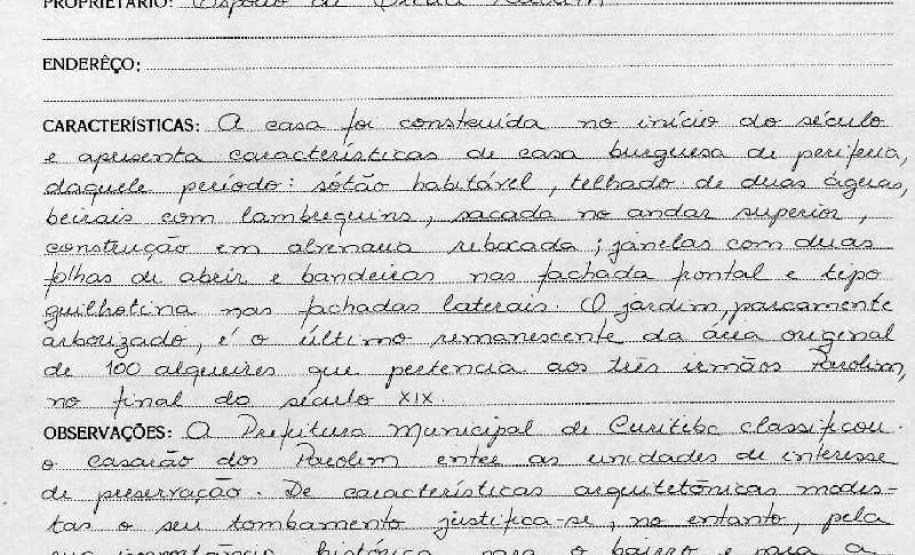 PROPRIETÁRIO: Espólio de
ENDERÊÇO:
CARACTERÍSTICAS: A casa foi construída no início do século
e apresenta características de casa burguesa de periferia,
daquele período: sótão habitável, telhado de duas águas,
beirais com lambrequins, sacada no andar superior,
construção em alvenaria rebocada; janelas com duas
folhas de abrir e bandeiras nas fachada frontal e tipo
guilhotina nas fachadas laterais. O jardim, parcamente
arborizado, é o último remanescente da área original
de 100 alqueires que pertencia aos três irmãos Parolim,
no final do século XIX.
OBSERVAÇÕES: A Prefeitura Municipal de Curitiba classificou
o casarão dos Parolim entre as unidades de interesse
de preservação. De características arquitetônicas modes-
tas o seu tombamento justifica-se, no entanto, pela
sua importância histórica para o bairro e para a